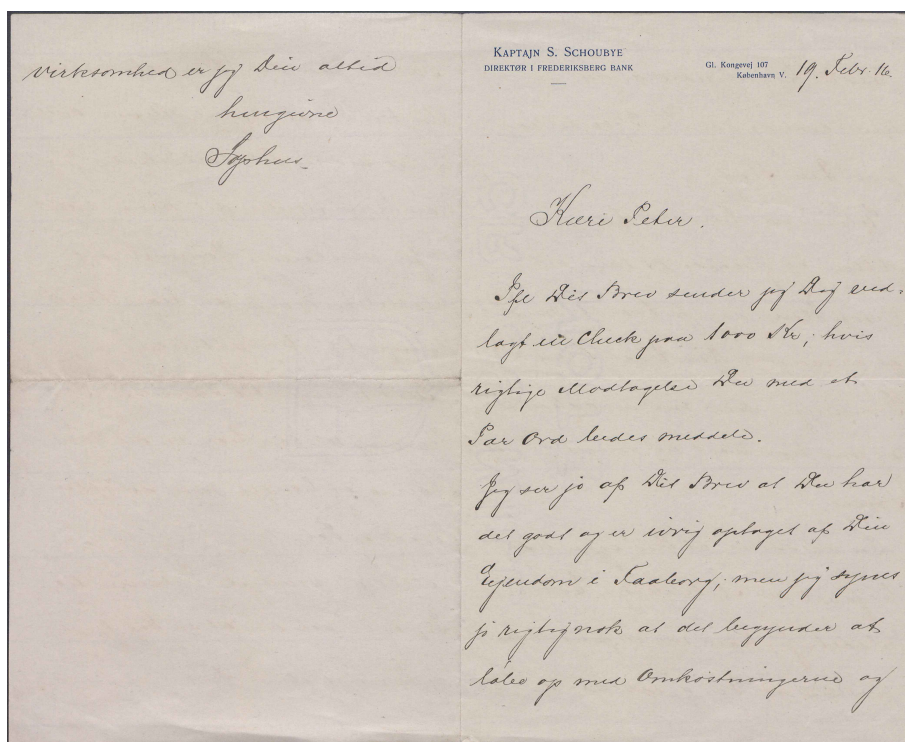 virksomhed er jeg Din altid
hengivne
Sophus
KAPTAJN S. SCHOUBYE
DIREKTØR I FREDERIKSBERG BANK
Gl. Kongevej 107
København V.
19. Febr. 16.
Kære Peter.
Ifl Dit Brev sender jeg Dig ved=
lagt en Check paa 1000 Kr, hvis
rigtige Modtagelse Du med et
Par Ord bedes meddele.
Jeg ser jo af Dit Brev at Du har
det godt og er ivrig optaget af Din
Ejendom i Faaborg; men jeg synes
jo rigtignok at det begynder at
løbe op med Omkostningerne og